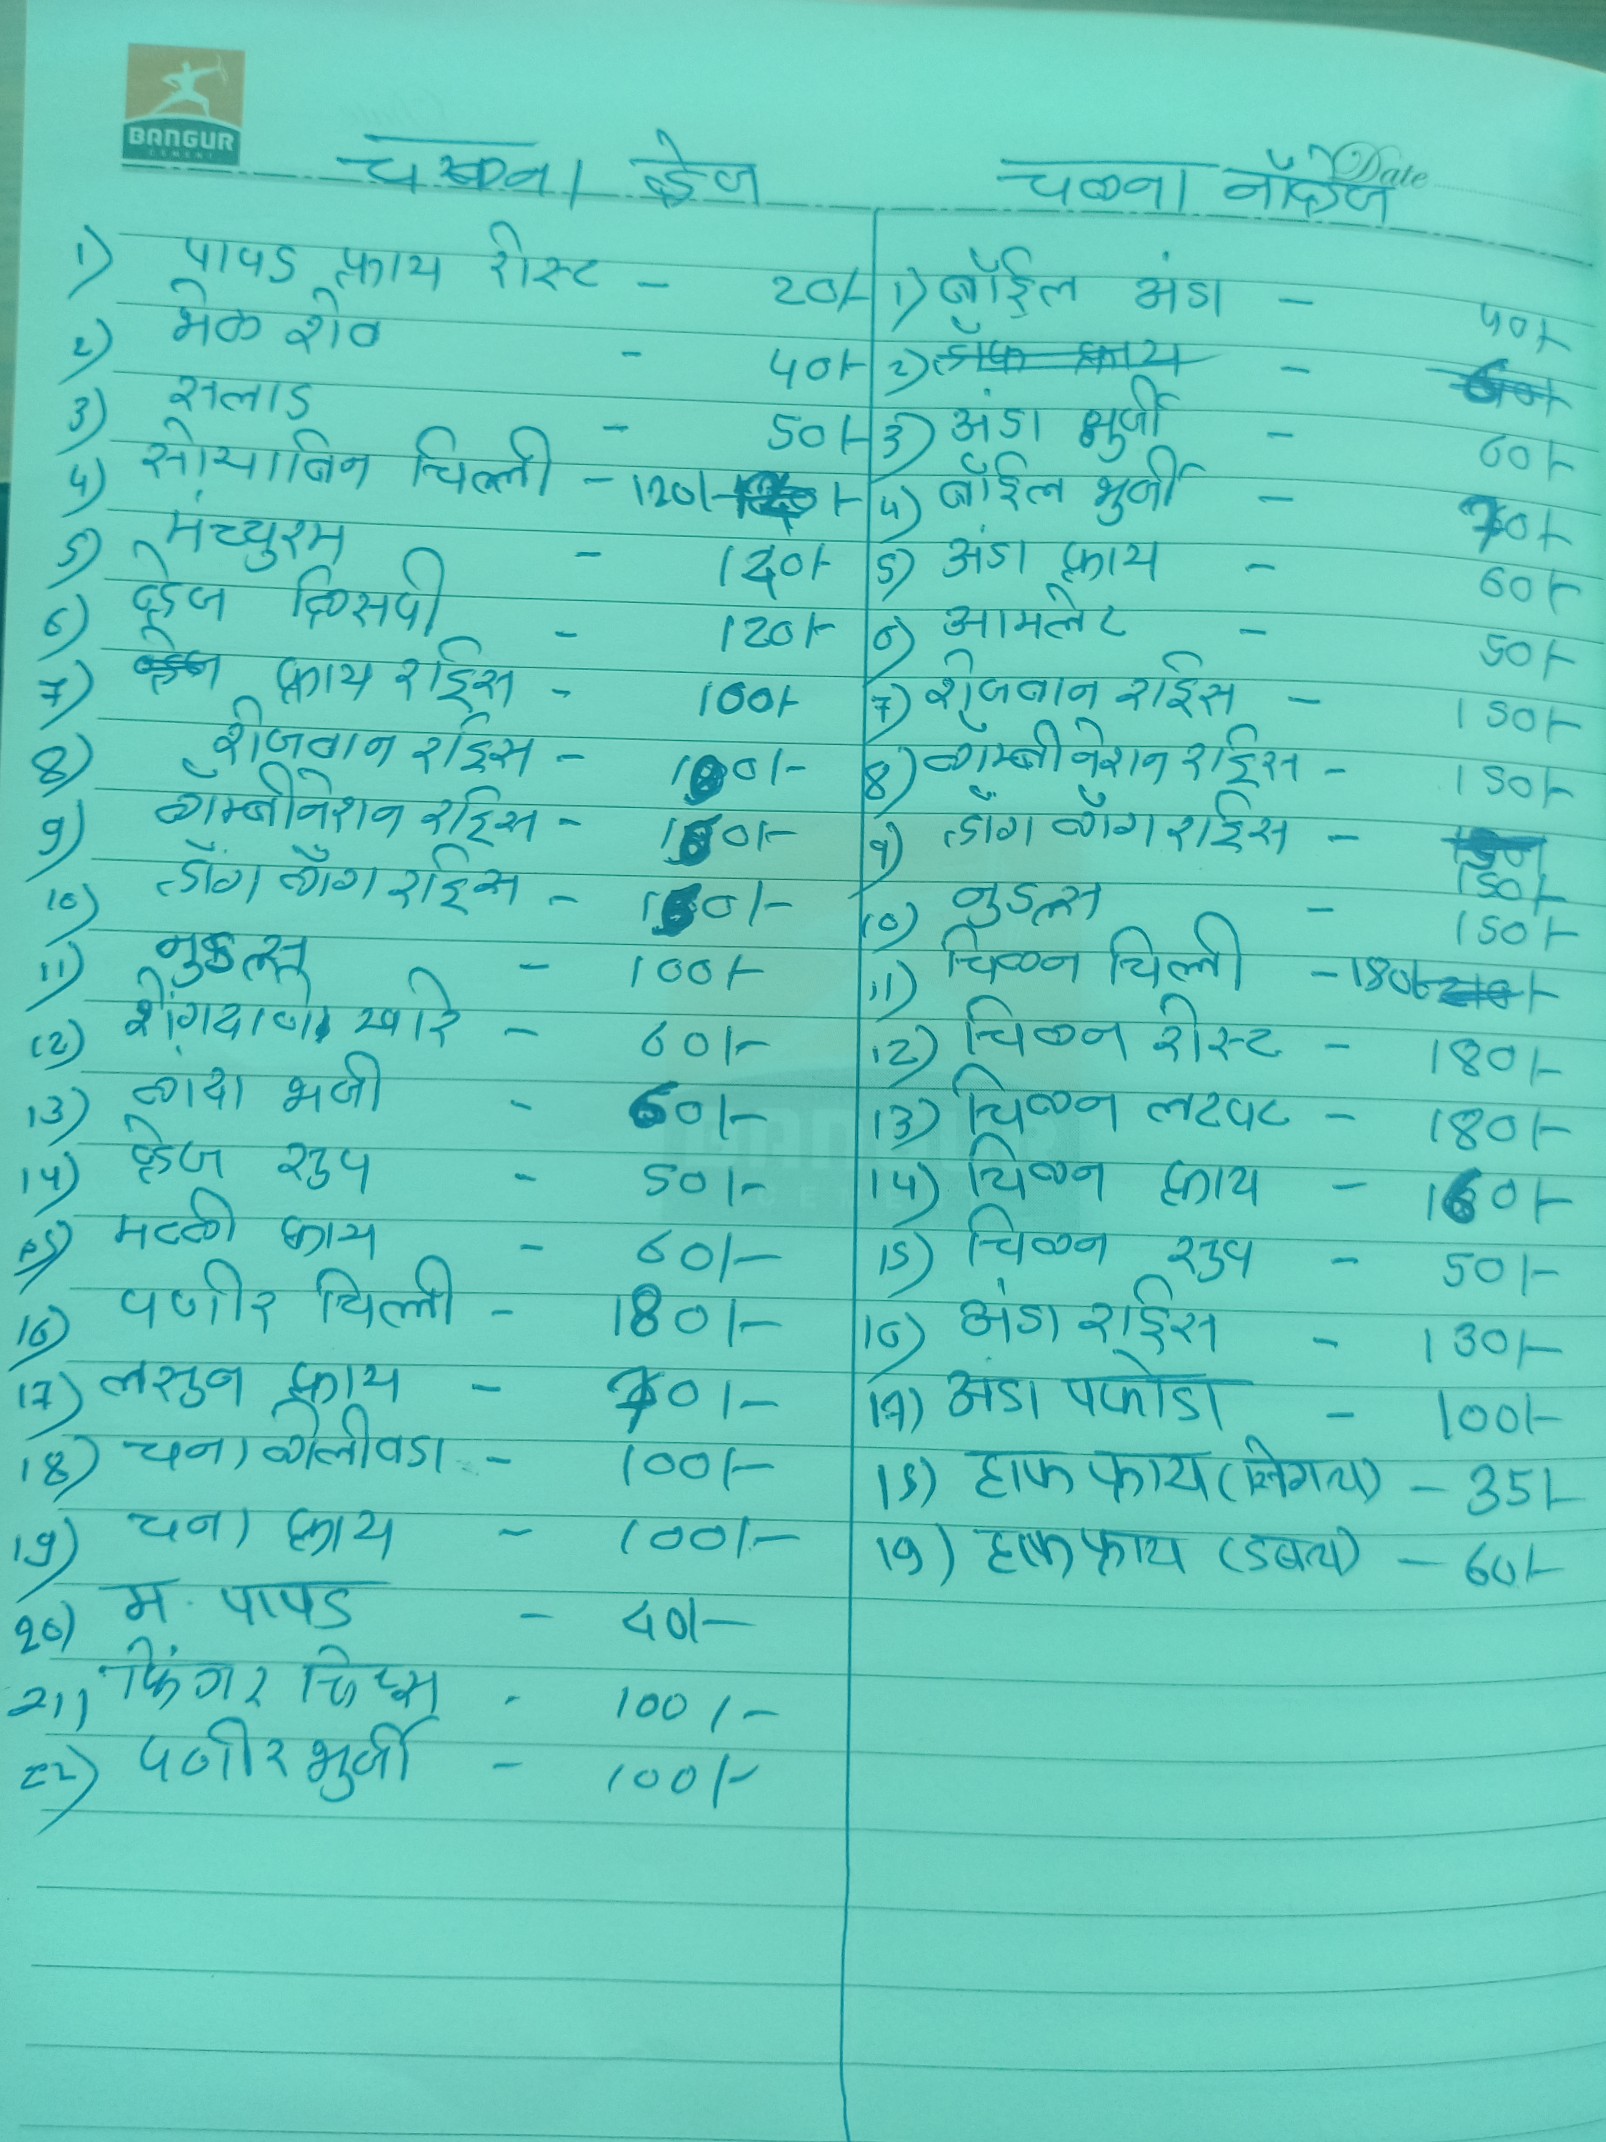 BANGUR
CEMENT
Date
चखना व्हेज
1) पापड फ्राय रोस्ट - 20/-
2) भेळ शेव - 40/-
3) सलाड - 50/-
4) सोयाबिन चिल्ली - 120/-
5) मंच्युरम - 120/-
6) व्हेज क्रिस्पी - 120/-
7) फ्राय राईस - 100/-
8) शेजवान राईस -
9) कॉम्बीनेशन राईस -
10) हाँग काँग राईस -
11) नुडल्स - 100/-
12) शेंगदाणे खारे - 60/-
13) कांदा भजी - 60/-
14) व्हेज सुप - 50/-
15) मटकी फ्राय - 60/-
16) पणीर चिल्ली - 180/-
17) लसुन फ्राय - 70/-
18) चना कोलीवडा - 100/-
19) चना फ्राय - 100/-
20) म. पापड - 40/-
21) फिंगर चिप्स - 100/-
22) पणीर भुर्जी - 100/-
चखना नॉनव्हेज
1) बॉईल अंडा - 40/-
2) हाफ फ्राय -
3) अंडा भुर्जी - 60/-
4) बॉईल भुर्जी - 70/-
5) अंडा फ्राय - 60/-
6) आमलेट - 50/-
7) शेजवान राईस - 150/-
8) कॉम्बीनेशन राईस - 150/-
9) हाँग काँग राईस - 150/-
10) नुडल्स - 150/-
11) चिकन चिल्ली - 180/-
12) चिकन रोस्ट - 180/-
13) चिकन लटपट - 180/-
14) चिकन फ्राय - 160/-
15) चिकन सुप - 50/-
16) अंडा राईस - 130/-
17) अंडा पकोडा - 100/-
18) हाफ फ्राय (सिंगल) - 35/-
19) हाफ फ्राय (डबल) - 60/-